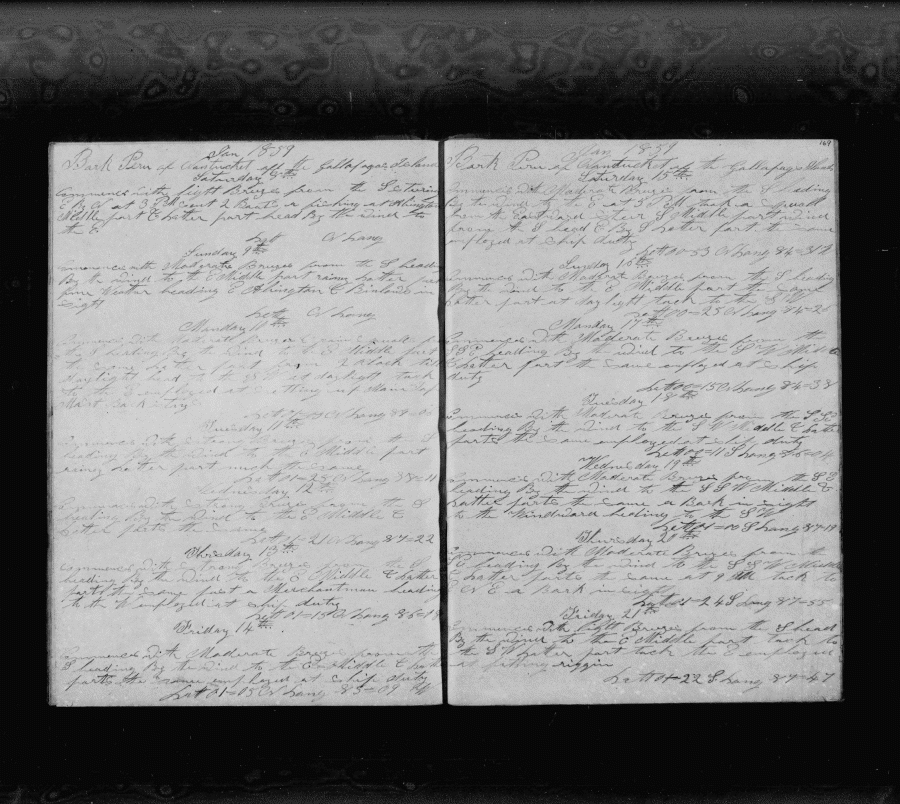 Jan 1839
Bark Peru of Nantucket off the Gallapagos Islands
Saturday 8th
Commences with light Breezes from the S stering
E By N at 3 PM sent 2 Boats a fishing at Abington
Middle part & latter part head By the wind to
the E
Lett N Long
Sunday 9th
Commences with Moderate Breezes from the S heading
By the wind to the E Middle part rainy latter
part heading E Abington & Binlands in
sight
Lett N Long
Monday 10th
Commences with Moderate Breezes from the S
heading By the wind to the E Middle part
the same latter part
daylight head to the at daylight tack
to the E employed at setting up
Mast Back stays
Lett N Long 88
Tuesday 11th
Commences with strong Breezes from the S
heading By the wind to the E Middle part
rainy latter part much the same
Lett 01=28 N Long 88=11
Wednesday 12th
Commences with strong Breezes from the S
heading By the wind to the E Middle &
latter parts the same
Lett 01=21 N Long 87=22
Thursday 13th
Commences with strong Breezes from the S
heading By the wind to the E Middle & latter
parts the same past a Merchantman heading
to the W employed at ship duty
Lett 01=15 N Long 86=19
Friday 14th
Commences with Moderate Breezes from the
S heading By the wind to the E Middle & latter
parts the same employed at ship duty
Lett 01=05 N Long 85=09 W
Jan 1839
169
Bark Peru of Nantucket off the Gallapagos Islands
Saturday 15th
Commences with Moderate Breezes from the S heading
By the wind to the E at 5 PM took a squall
from the Eastward steer S Middle part wind
from the S head E By S latter part the same
employed at ship duty
Lett 00=53 N Long 84=31
Sunday 16th
Commences with Moderate Breezes from the S heading
By the wind to the E Middle part the same
latter part at daylight tack to the S W
Lett 00=25 N Long 84=26
Monday 17th
Commences with Moderate Breezes from the
S S E heading By the wind to the S W Middle
& latter part the same employed at ship
duty
Lett 00=15 N Long 84=38
Tuesday 18th
Commences with Moderate Breezes from the S S E
heading By the wind to the S W Middle & latter
parts the same employed at ship duty
Lett 00=11 S Long 86=04
Wednesday 19th
Commences with Moderate Breezes from the S E
heading By the wind to the S S W Middle &
latter parts the same a Bark in sight
to the windward heading to the S W
Lett 01=10 S Long 87=19
Thursday 20th
Commences with Moderate Breezes from the
E heading By the wind to the S S W Middle
& latter parts the same at 9 AM tack to
E N E a Bark in sight
Lett 01=24 S Long 87=55
Friday 21th
Commences with light Breezes from the S head
By the wind to the E Middle part tack to
the S W latter part tack the E employed
at fitting riggin
Lett 01=22 S Long 87=47